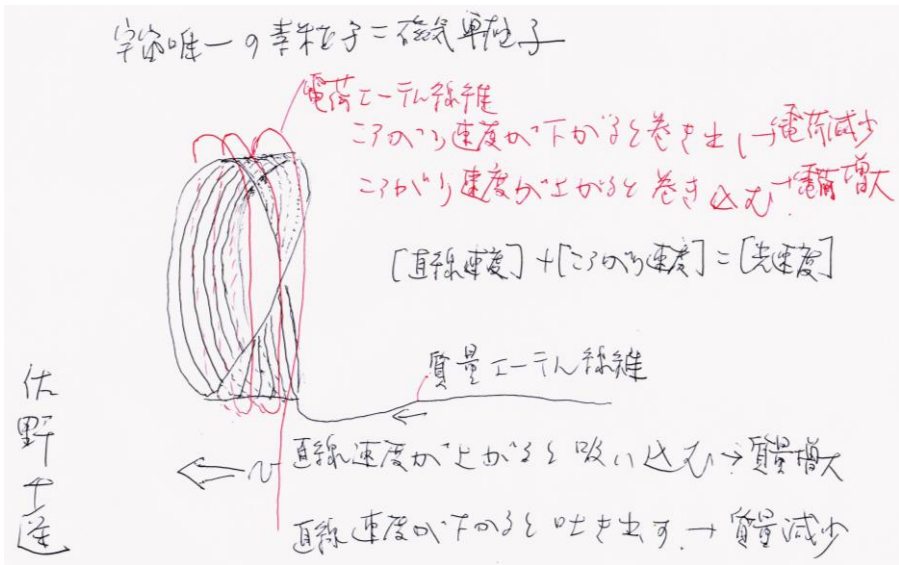 宇宙唯一の素粒子=磁気単極子
電荷エーテル繊維
ころがり速度が下がると巻き出し→電荷減少
ころがり速度が上がると巻き込む→電荷増大
[直線速度]+[ころがり速度]=[光速度]
質量エーテル繊維
直線速度が上がると吸い込む→質量増大
直線速度が下がると吐き出す.→質量減少
佐野千遥